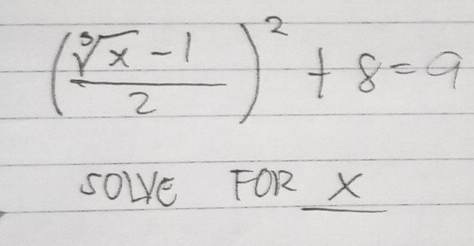 (∛x - 1 / 2)² + 8 = 9
SOLVE FOR x